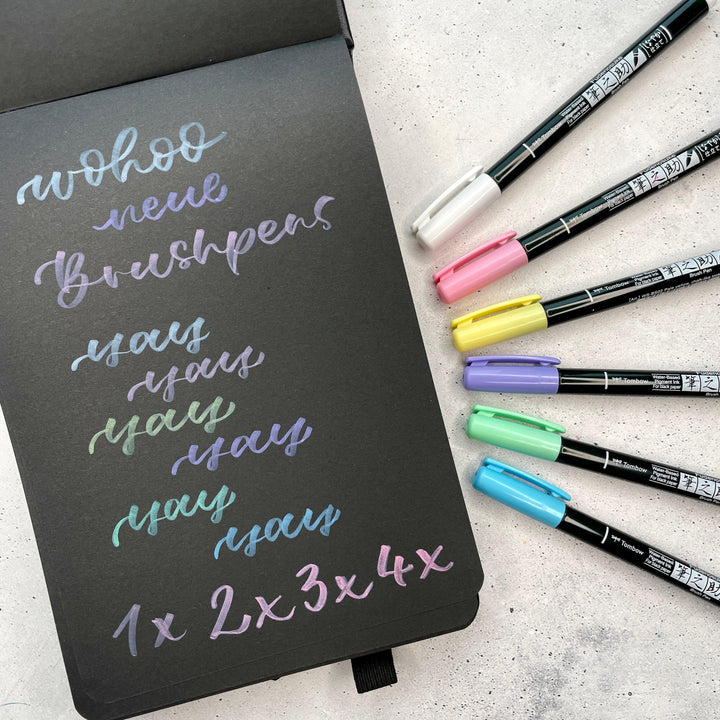 wohoo
neue
Brushpens
yay
yay
yay
yay
yay
yay
1x 2x 3x 4x
Tombow
筆之助
Brush Pen
Water-Based
Pigment Ink
For black paper
Tombow
筆之助
Brush Pen
Water-Based
Pigment Ink
For black paper
Tombow
筆之助
Brush Pen
Water-Based
Pigment Ink
For black paper
Tombow
筆之
Brush
Water-Based
Pigment Ink
For black paper
Tombow
筆之
Brush
Water-Based
Pigment Ink
For black paper
Tombow
筆之助
Brush Pen
Water-Based
Pigment Ink
For black paper